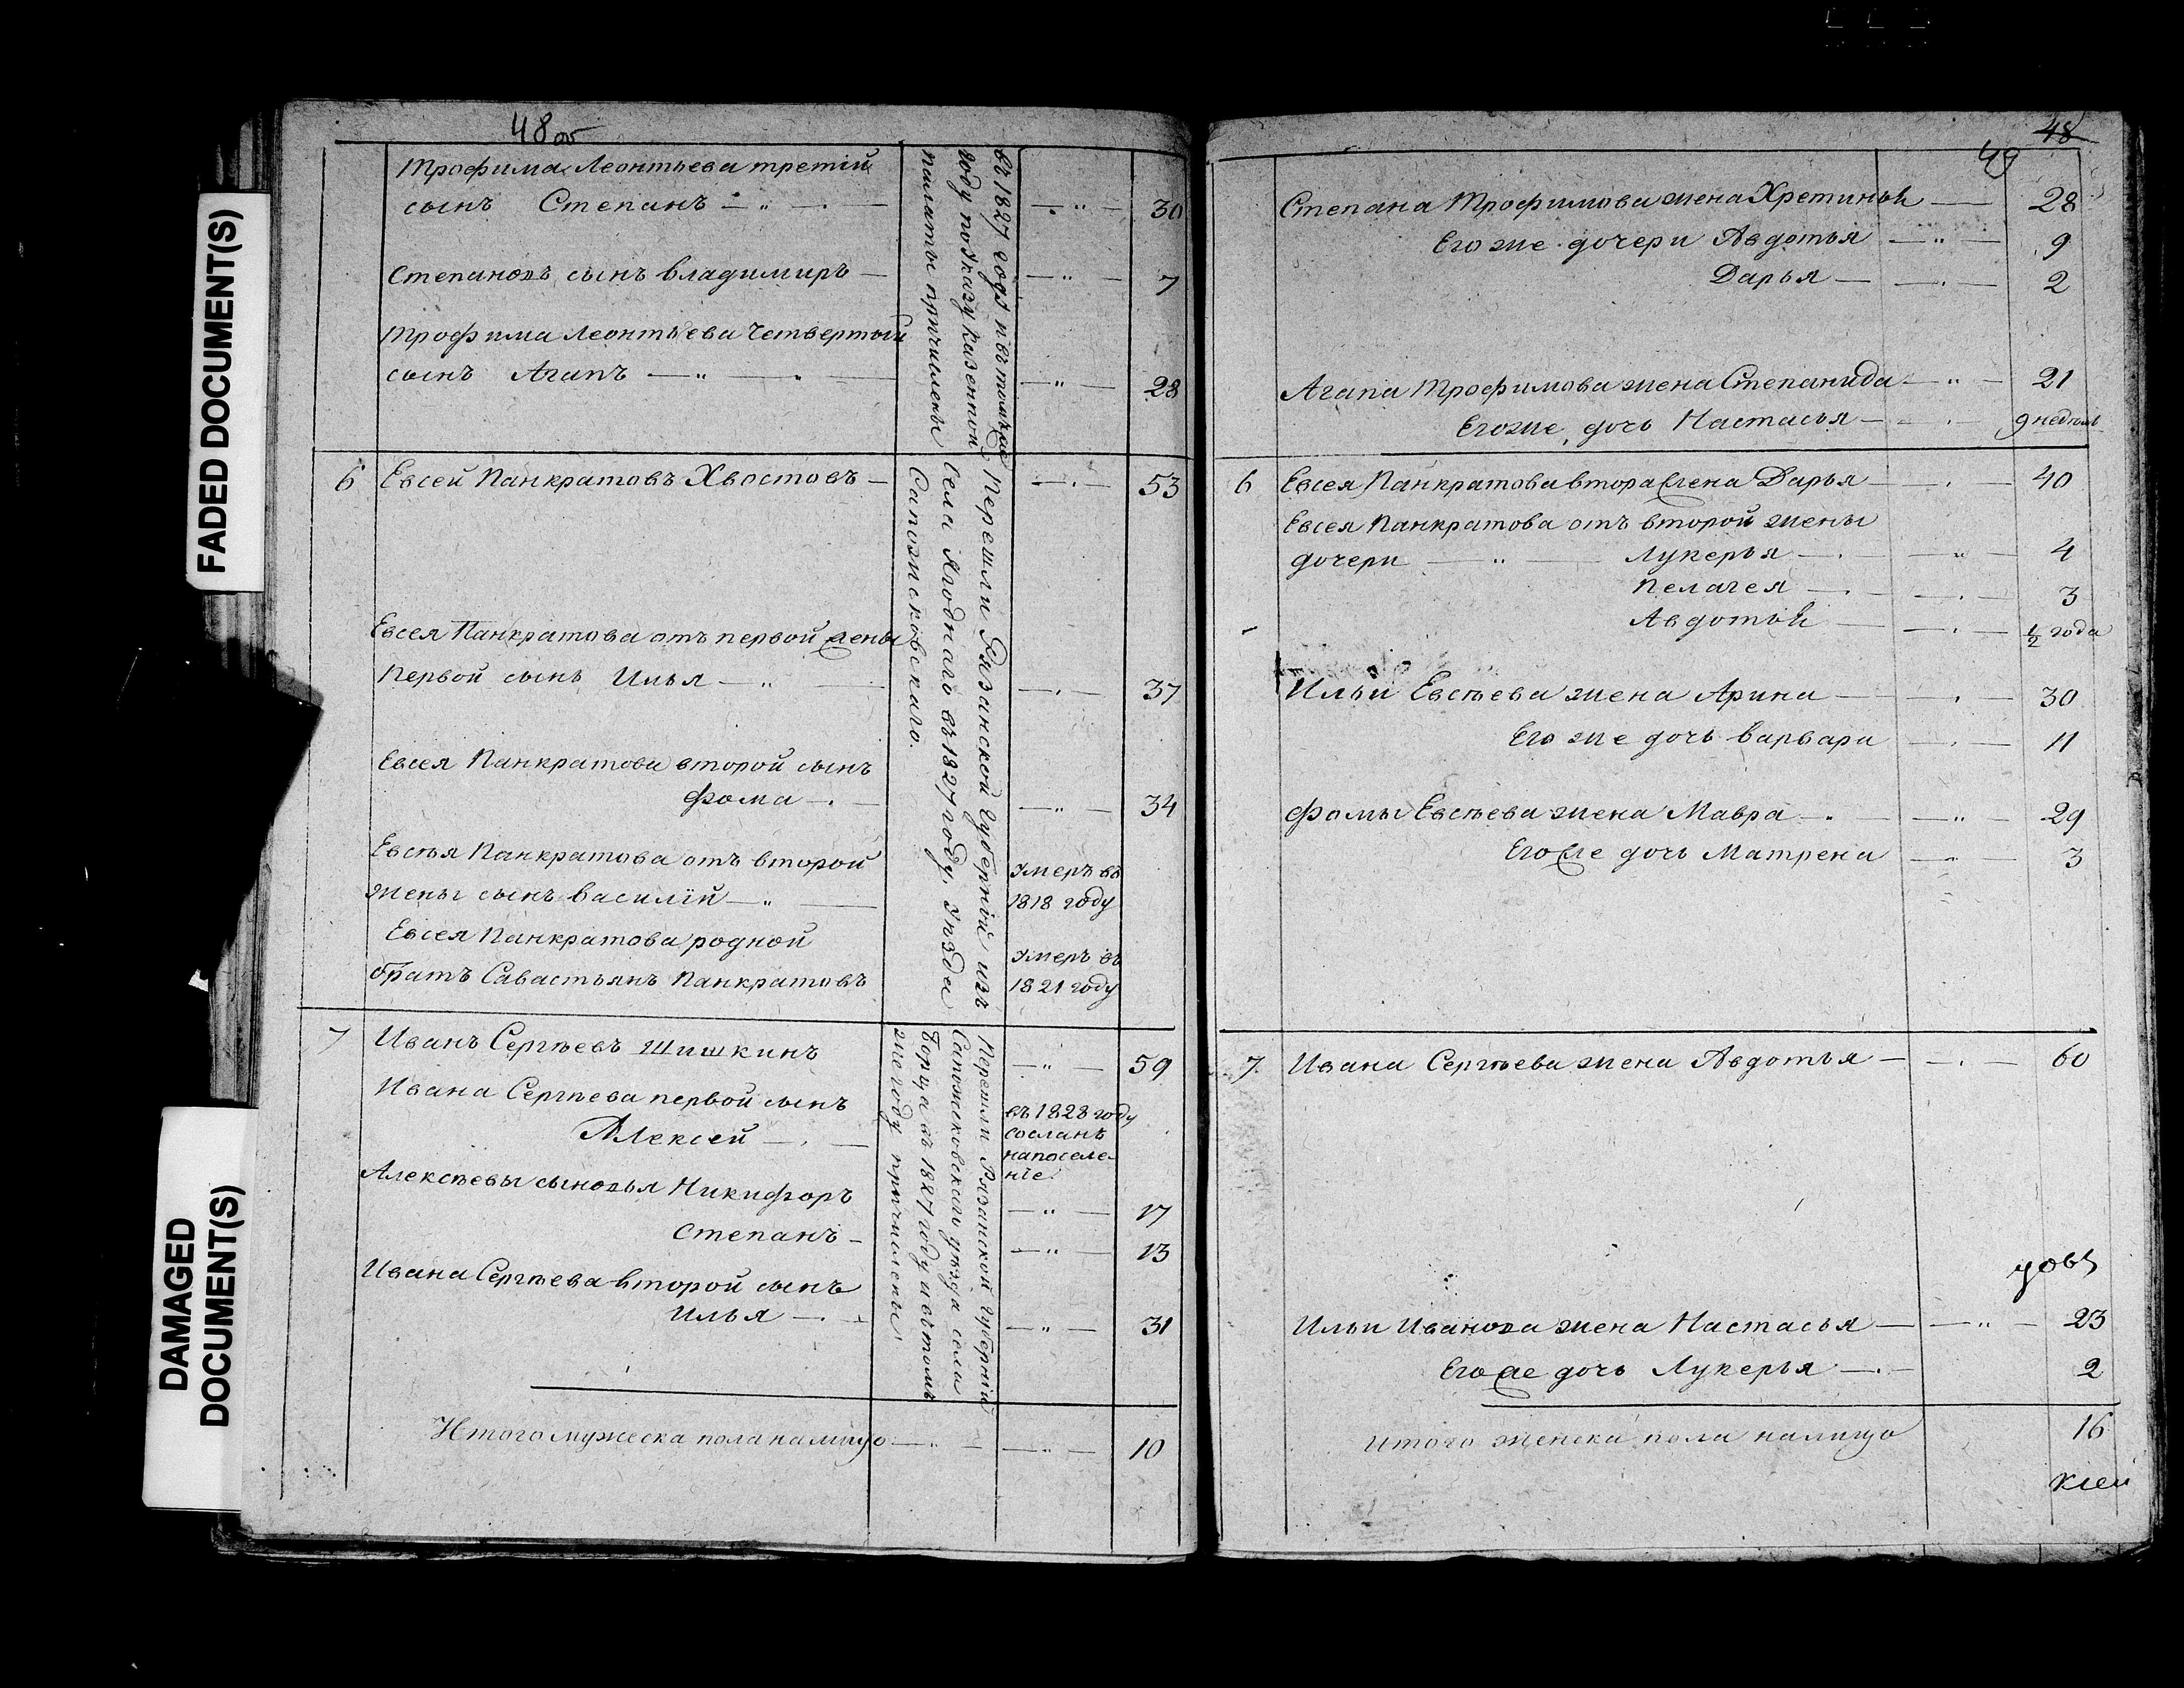 48 об
Трофима Леонтьева третій
сынъ Степанъ — „ — . — — „ — 30
Степановъ сынъ Владимиръ — — „ — 7
Трофима Леонтьева Четвертый
сынъ Агапъ — „ — „ — — „ — 28
въ 1827 годѣ и въ томъ же
году по указу Казенной
палаты причислены
6 Евсей Панкратовъ Хвостовъ — — . — 53
Евсея Панкратова отъ первой жены
Первой сынъ Илья — „ — — . — 37
Евсея Панкратова второй сынъ
Фома — . — — „ — 34
Евсѣя Панкратова отъ второй
жены сынъ Василій — „ — умеръ въ
1818 году
Евсея Панкратова родной
братъ Савастьянъ Панкратовъ умеръ въ
1821 году
Перешли Рязанской Губерніи изъ
села Ягоднаго въ 1827 году. Уѣзда
Сапожсковскаго.
7 Иванъ Сергѣевъ Шишкинъ — „ — 59
Ивана Сергѣева первой сынъ
Алексей — . — въ 1828 году
сосланъ
на поселе-
ніе.
Алексѣевы сыновья Никифоръ — „ — 17
Степанъ — — „ — 13
Ивана Сергѣева второй сынъ
Илья — . — — „ — 31
Перешли Рязанской Губерніи
Сапожсковскаго уѣзда села
Борца въ 1827 году и въ томъ
же году причислены
Итого мужеска пола на лицо — „ — — „ — 10
48
49
Степана Трофимова жена Хретинья — — 28
Его же дочери Авдотья — „ — 9
Дарья — — . — 2
Агапа Трофимова жена Степанида — „ — 21
Его же дочь Настасья — — . — 9 недѣль
6 Евсея Панкратова втора жена Дарья — . — 40
Евсея Панкратова отъ второй жены
дочери — „ — Лукерья — . — „ — 4
Пелагея — . — . — 3
Авдотья — — . — ½ года
Ильи Евсѣева жена Арина — . — 30
Его же дочь Варвара — . — 11
Фомы Евсѣева жена Мавра — . — — „ — 29
Его же дочь Матрена — „ — 3
7 Ивана Сергѣева жена Авдотья — — . — 60
Ильи Иванова жена Настасья — — „ — 23
Его же дочь Лукерья — . — 2
Итого женска пола налицо 16